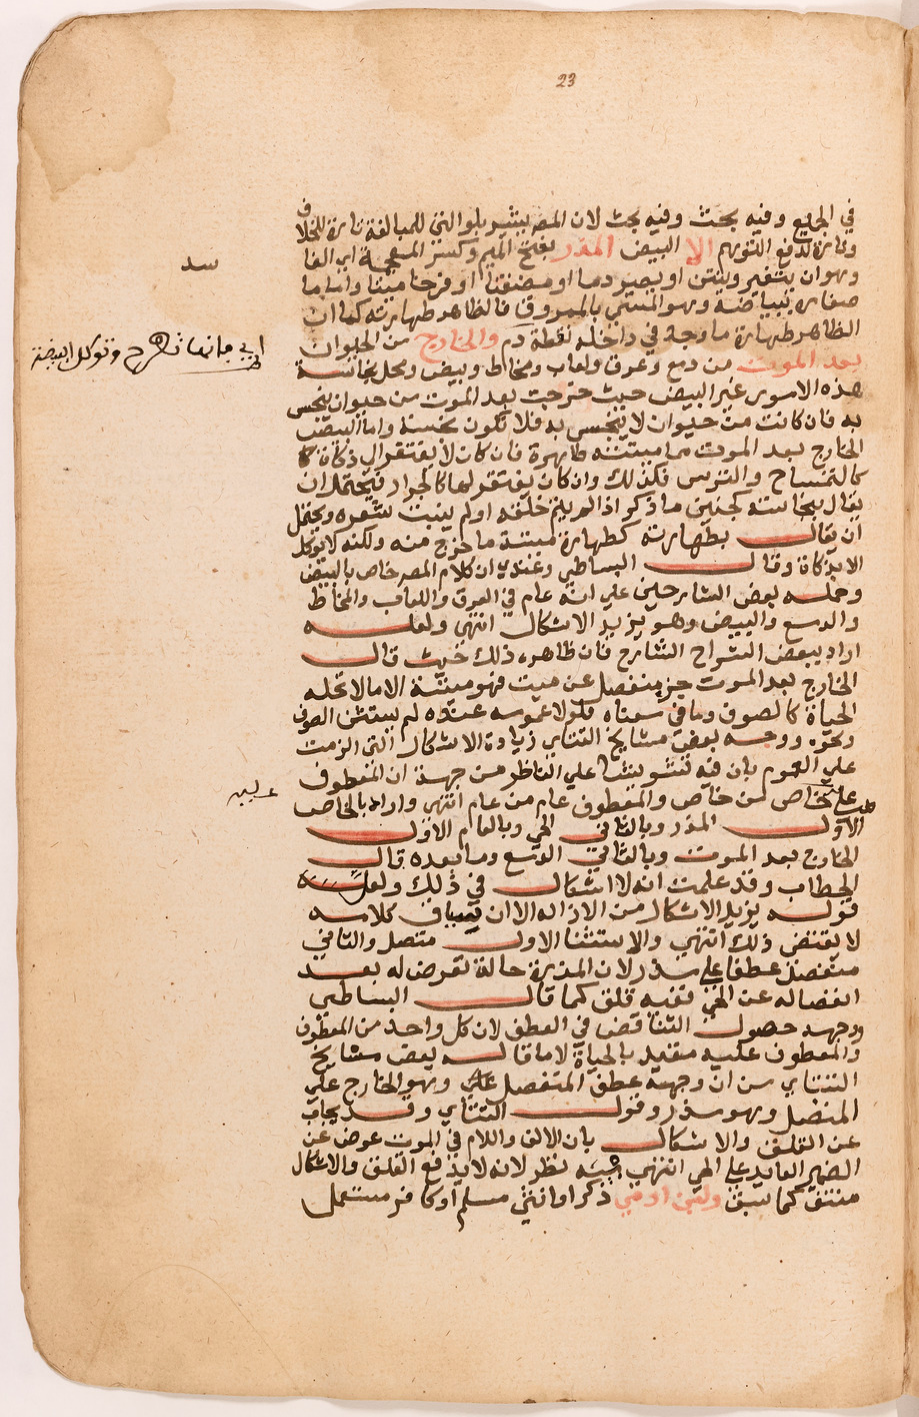 23
في الجميع وفيه بحث وفيه بحث لان المصر يشير بلو التي للمبالغة تارة للخلاف
وتارة لدفع التوهم الا البيض المذر بفتح الميم وكسر المعجمة اي الفا
سد
وهو ان يتغير وينتن او يصير دما او مضغة او فرخا ميتا واما ما
صفاره ببياضه وهو المسمي بالممروق فالظاهر طهارته كما ان
الظاهر طهارة ما وجد في داخله نقطة دم والخارج من الحيوان
بعد الموت من دمع وعرق ولعاب ومخاط وبيض ومحل نجاسة
هذه الامور غير البيض حيث خرجت بعد الموت من حيوان ينجس
به فان كانت من حيوان لا ينجس به فلا تكون نجسة واما البيض
الخارج بعد الموت مما ميتته طاهرة فان كان لا يفتقر الي ذكاة كا
كالتمساح والترس فكذلك وان كان يفتقر لها كالجراد فيحتمل ان
يقال بنجاسته كجنين ما ذكر اذا لم يتم خلقه او لم ينبت شعره ويحتمل
ان يقال بطهارته كطهارة ميتة ما خرج منه ولكنه لا يوكل
الا بذكاة وقال البساطي وعندي ان كلام المصر خاص بالبيض
وحمله بعض الشارحين علي انه عام في العرق واللعاب والمخاط
والدمع والبيض وهو يزيد الاشكال انتهي ولعله
اراد ببعض الشراح الشارح فان ظاهره ذلك حيث قال
الخارج بعد الموت جزء منفصل عن ميت فهو ميتة الا ما لا تحله
الحياة كالصوف وما في معناه فلولا عمومه عنده لم يستثن الصوف
ونحوه ووجه بعض مشايخ التتاي زيادة الاشكال التي الزمت
علي العموم بان فيه تشويشا علي الناظر من جهة ان المعطوف
عليه خاص من خاص والمعطوف عام من عام انتهي واراد بالخاص
الاول المذر وبالثاني الحي وبالعام الاول
الخارج بعد الموت وبالثاني الدمع وما بعده قال
الحطاب وقد علمت انه لا اشكال في ذلك ولعل
قوله يزيد الاشكال من الازاله الا ان سياق كلامه
لا يقتض ذلك انتهي والاستثنا الاول متصل والثاني
منفصل عطفا علي مذر لان المذرة حالة تعرض له بعد
انفصاله عن الحي ففيه قلق كما قال البساطي
ووجهه حصول التناقض في العطف لان كل واحد من المعطوف
والمعطوف عليه مقيد بالحياة لا ما قاله بعض مشايخ
التتاي من ان وجهه عطف المنفصل وهو الخارج علي
المتصل وهو مذر وقول التتاي وقد يجاب
عن القلق والاشكال بان الالف واللام في الموت عوض عن
الضمير العايد علي الحي انتهي فيه نظر لانه لا يدفع القلق والاشكال
منتف كما سبق ولبن ادمي ذكر او انثي مسلم او كافر مستعمل